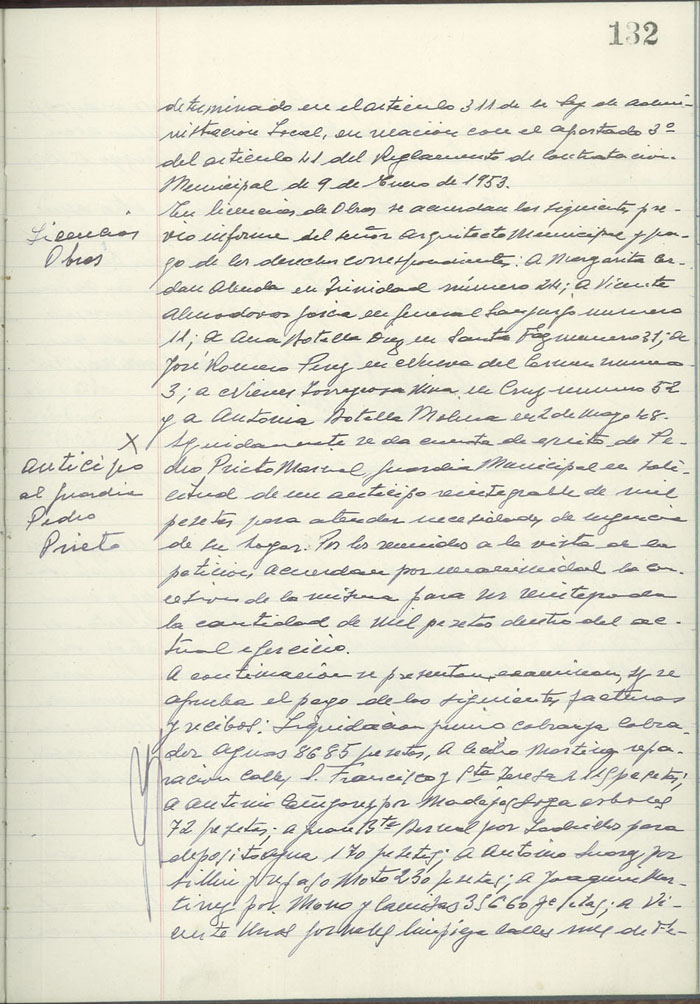 132
determinado en el articulo 311 de la Ley de Admi-
nistracion Local, en relacion con el apartado 3º
del articulo 41 del Reglamento de Contratacion
Municipal de 9 de Enero de 1953.
Licencias
Obras
En licencias de Obras se acuerdan las siguientes pre-
vio informe del señor Arquitecto Municipal y pa-
go de los derechos correspondientes: A Margarita Cer-
dan en Trinidad número 24; a Vicente
Almodovar Garcia en General Sanjurjo numero
11; a Ana Botella Diez en Santa Faz numero 31; a
José Romero Perez en Nueva del Carmen numero
3; a Nieves Torregrosa en Cruz numero 52
y a Antonia Botella Molina en 2 de Mayo 48.
X
Anticipo
al guardia
Pedro
Prieto
Seguidamente se da cuenta de escrito de Pe-
dro Prieto Guardia Municipal en soli-
citud de un anticipo reintegrable de mil
pesetas para atender necesidades de urgencia
de su hogar. Por los reunidos a la vista de la
peticion, acuerdan por unanimidad la con-
cesion de la misma para ser reintegrada
la cantidad de mil pesetas dentro del ac-
tual ejercicio.
A continuacion se presentan, examinan, y se
aprueba el pago de las siguientes facturas
y recibos: Liquidacion premio cobranza Cobra-
dor Aguas 8685 pesetas, A Martinez repa-
racion Calles S. Francisco y Sta Teresa pesetas;
a Antonio por Madejas Soga arboles
72 pesetas; a Juan Bta Bernal por Ladrillo para
deposito Agua 170 pesetas; a Antonio por
sillin y Moto 230 pesetas; a Joaquin Mar-
tinez por Mono y Camisas 35660 pesetas; a Vi-
cente jornales limpieza Calles mes de Fe-